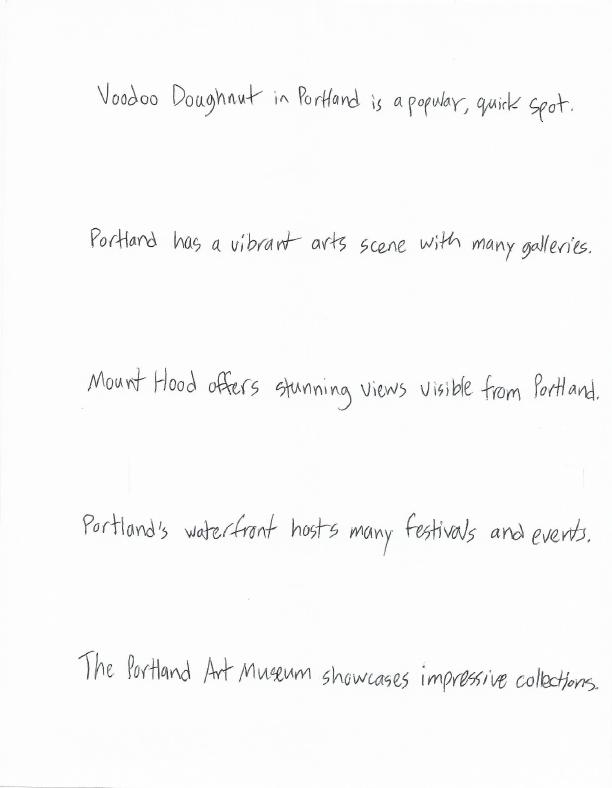 Voodoo Doughnut in Portland is a popular, quick spot.
Portland has a vibrant arts scene with many galleries.
Mount Hood offers stunning views visible from Portland.
Portland's waterfront hosts many festivals and events.
The Portland Art Museum showcases impressive collections.